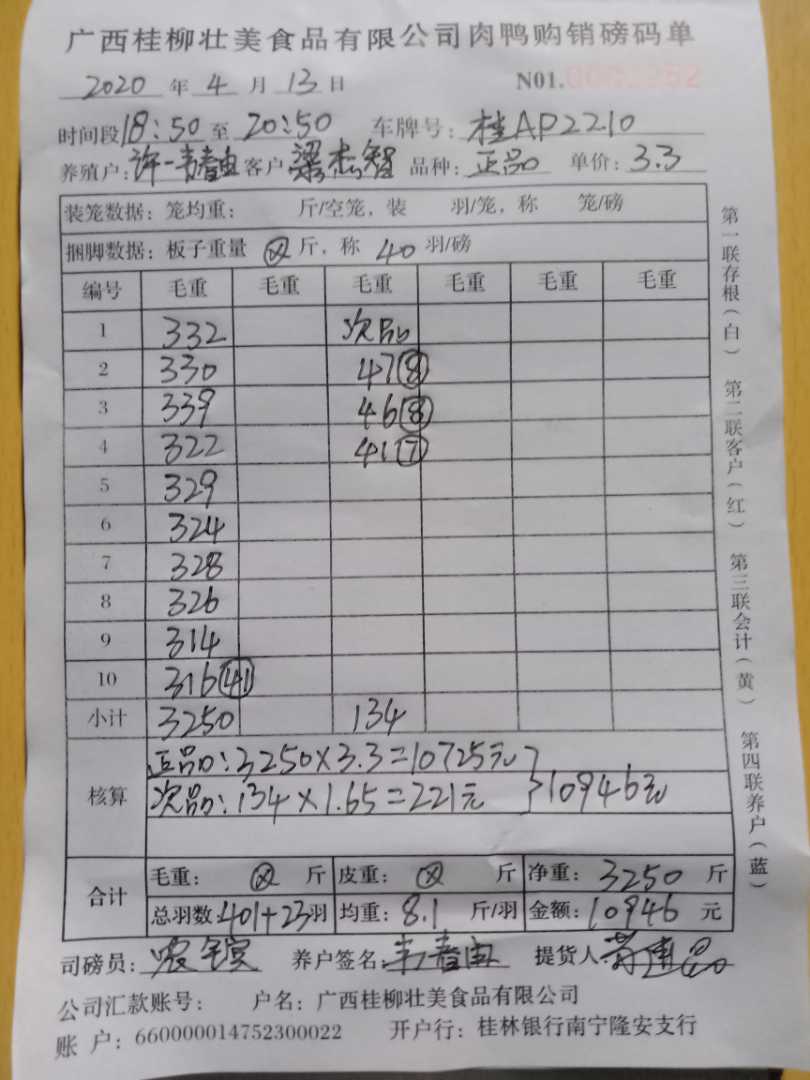 广西桂柳壮美食品有限公司肉鸭购销磅码单
2020 年 4 月 13 日 N01.
时间段 18:50 至 20:50 车牌号: 桂AP2210
养殖户: 许一韦春由 客户 梁杰智 品种: 正品 单价: 3.3
装笼数据: 笼均重: 斤/空笼, 装 羽/笼, 称 笼/磅
捆脚数据: 板子重量 斤, 称 40 羽/磅
编号 毛重 毛重 毛重 毛重 毛重 毛重
1 332 次品
2 330 47⑧
3 339 46⑧
4 322 41⑦
5 329
6 324
7 328
8 326
9 314
10 316㊶
小计 3250 134
核算 正品: 3250×3.3=10725元
次品: 134×1.65=221元 }10946元
合计 毛重: 斤 皮重: 斤 净重: 3250 斤
总羽数: 401+23羽 均重: 8.1 斤/羽 金额: 10946 元
司磅员: 养户签名: 韦春由 提货人:
公司汇款账号: 户名: 广西桂柳壮美食品有限公司
账 户: 660000014752300022 开户行: 桂林银行南宁隆安支行
第一联存根(白) 第二联客户(红) 第三联会计(黄) 第四联养户(蓝)